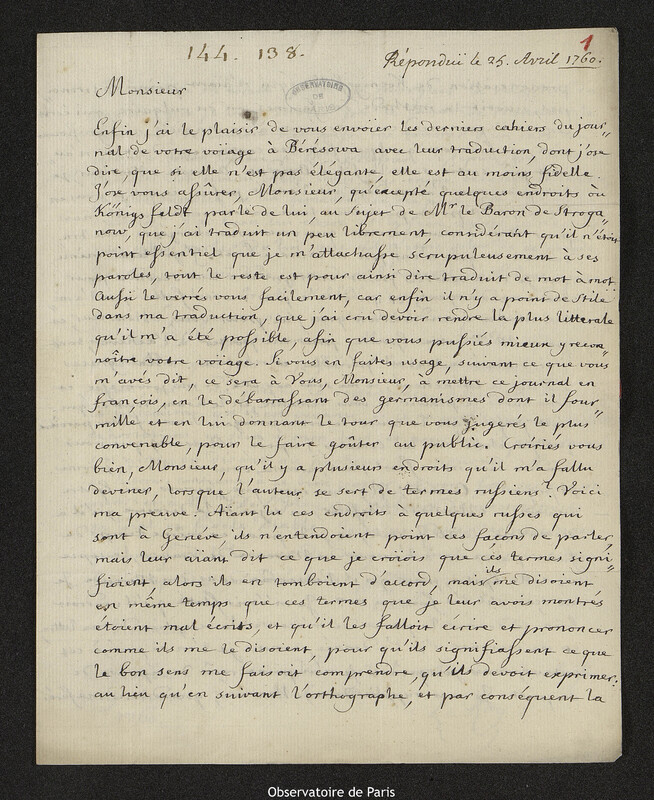 144. 138.
1
Répondüe le 25. Avril 1760.
OBSERVATOIRE
DE
PARIS
Monsieur
Enfin j'ai le plaisir de vous envoïer les derniers cahiers du jour„
nal de votre voïage à Bérésowa avec leur traduction, dont j'ose
dire, que si elle n'est pas élégante, elle est au moins fidelle.
J'ose vous assûrer, Monsieur, qu'excepté quelques endroits où
Königsfeldt parle de lui, au sujet de Mr le Baron de Stroga„
now, que j'ai traduit un peu librement, considérant qu'il n'étoit
point essentiel que je m'attachasse scrupuleusement à ses
paroles, tout le reste est pour ainsi dire traduit de mot à mot
Aussi le verrés vous facilement, car enfin il n'y a point de stile
dans ma traduction, que j'ai cru devoir rendre la plus litterale
qu'il m'a été possible, afin que vous pussiés mieux y recon„
noître votre voiage. Si vous en faites usage, suivant ce que vous
m'avés dit, ce sera à Vous, Monsieur, à mettre ce journal en
françois, en le débarrassant des germanismes dont il four„
mille, et en lui donnant le tour que vous jugerés le plus
convenable, pour le faire goûter au public. Croiriés vous
bien, Monsieur, qu'il y a plusieurs endroits qu'il m'a fallu
deviner, lorsque l'auteur se sert de termes russiens? Voici
ma preuve. Aïant lu ces endroits à quelques russes qui
sont à Genéve, ils n'entendoient point ces façons de parler,
mais leur aïant dit ce que je croïois que ces termes signi„
fioient, alors ils en tomboient d'accord, mais ils me disoient
en même temps que ces termes que je leur avois montrés
étoient mal écrits, et qu'il les falloit écrire et prononcer
comme ils me le disoient, pour qu'ils signifiassent ce que
le bon sens me faisoit comprendre, qu'ils devoit exprimer:
au lieu qu'en suivant l'orthographe, et par conséquent la
Observatoire de Paris